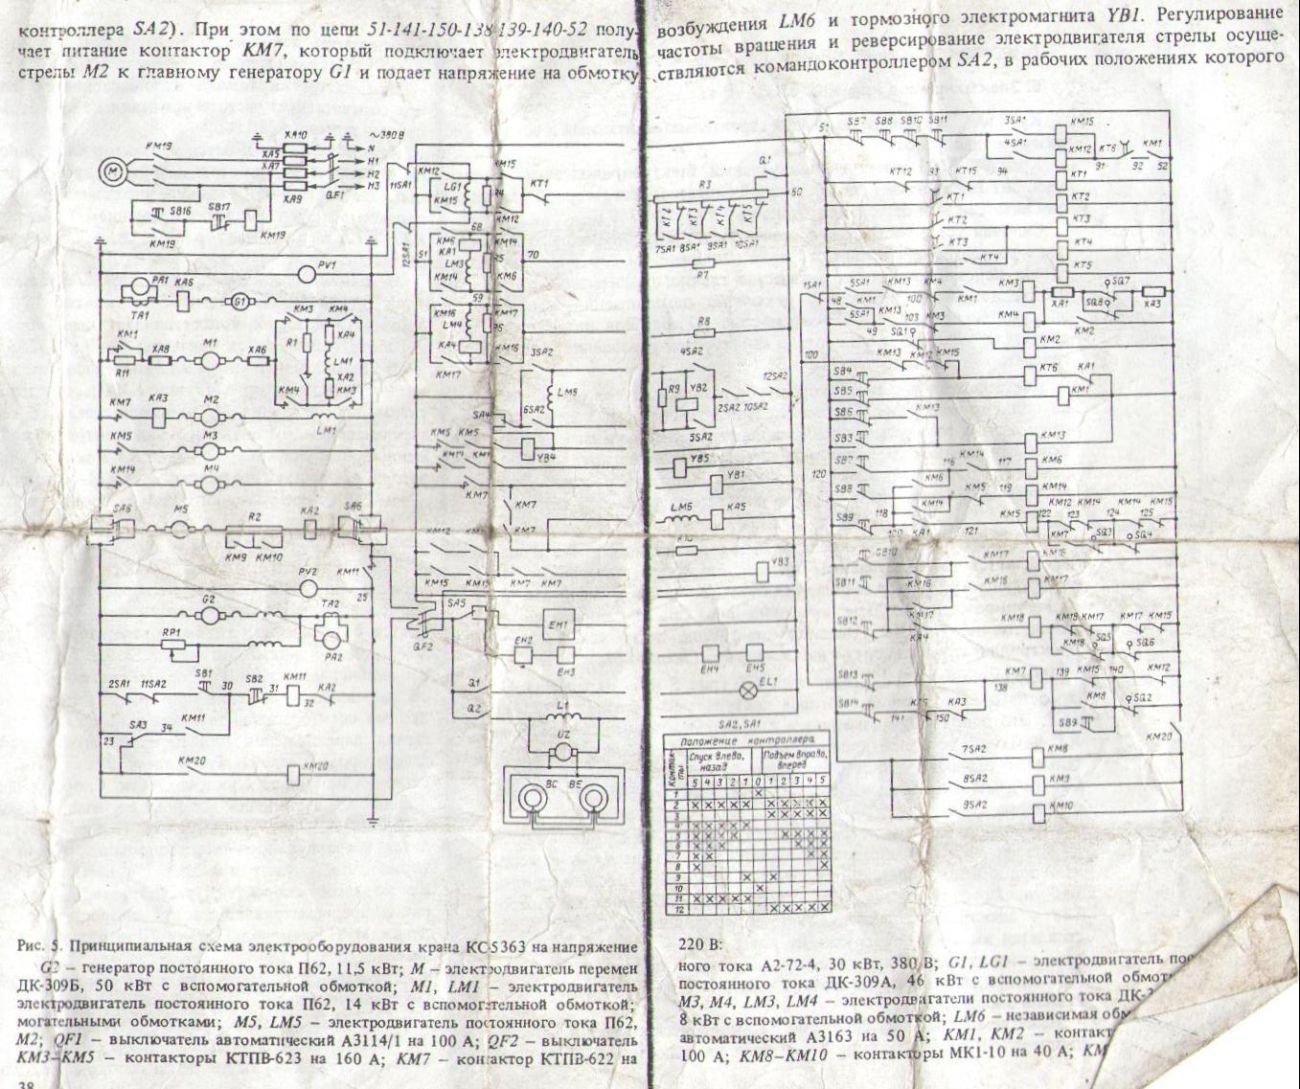 контроллера SA2). При этом по цепи 51-141-150-138-139-140-52 полу-
чает питание контактор KM7, который подключает электродвигатель
стрелы M2 к главному генератору G1 и подает напряжение на обмотку
возбуждения LM6 и тормозного электромагнита YB1. Регулирование
частоты вращения и реверсирование электродвигателя стрелы осуще-
ствляются командоконтроллером SA2, в рабочих положениях которого
KM19
XA10
~380В
XA5
N
XA7
H1
H2
XA9
QF1
H3
M
SB16
SB17
KM19
KM19
PV1
PA1
KA6
TA1
G1
KM1
R11
XA8
M1
XA6
KM3
KM4
R1
XA4
LM1
XA2
KM4
KM3
KM7
KA3
M2
LM1
KM5
M3
KM14
M4
SA6
M5
R2
KA2
SA6
KM9
KM10
PV2
KM11
25
G2
TA2
RP1
PA2
2SA1
11SA2
SB1
30
SB2
31
KM11
32
KA2
SA3
34
KM11
23
KM20
KM20
11SA1
KM12
KM15
LG1
KT1
KM15
KM12
12SA1
68
KM6
KM14
51
KA1
70
LM3
KM14
KM6
59
KM16
KM17
LM4
KA4
KM16
KM17
3SA2
LM5
SA4
6SA2
KM5
KM5
YB4
KM7
KM7
KM7
KM12
KM15
KM15
KM7
KM7
SA5
QF2
EH1
EH2
EH3
Q1
Q2
L1
UZ
BC
BE
Q1
R3
50
KT2
KT3
KT4
KT5
7SA1
8SA1
9SA1
10SA1
R7
R8
4SA2
R9
YB2
12SA2
2SA2
10SA2
5SA2
YB5
YB1
LM6
KA5
YB3
EH4
EH5
EL1
51
SB7
SB8
SB10
SB11
3SA1
KM15
4SA1
KM12
KT6
KM1
91
92
52
KT12
93
KT15
94
KT1
KT1
KT2
KT2
KT3
KT3
KT4
KT4
KT5
1SA1
5SA1
KM13
KM4
KM3
SQ7
48
KM1
100
KM1
XA1
SQ8
XA3
6SA1
KM13
103
KM3
KM4
49
SQ1
KM2
KM2
100
KM13
KM12
KM15
SB4
KT6
KA1
SB5
KM1
SB6
KM13
SB3
KM13
SB7
116
KM14
117
KM6
120
KM6
SB8
KM5
119
KM14
KM14
SB9
118
121
KM5
122
KM12
KM14
KM14
KM15
123
124
125
KM7
SQ3
SQ4
SB10
KM17
KM16
SB11
KM16
KM16
KM17
KM17
SB12
KA4
KM18
KM16
KM17
KM17
KM15
KM18
SQ5
SQ6
SB13
KM7
139
KM15
140
KM12
138
SB14
141
KT6
150
KA3
KM8
SQ2
SB9
KM20
7SA2
KM8
8SA2
KM9
9SA2
KM10
SA2, SA1
Положение контроллера
Контак-
ты
Спуск влево,
назад
Подъем вправо,
вперед
5 4 3 2 1 0 1 2 3 4 5
1
2
3
4
5
6
7
8
9
10
11
12
Рис. 5. Принципиальная схема электрооборудования крана КС-5363 на напряжение
220 В:
G2 – генератор постоянного тока П62, 11,5 кВт; M – электродвигатель перемен
ДК-309Б, 50 кВт с вспомогательной обмоткой; M1, LM1 – электродвигатель
электродвигатель постоянного тока П62, 14 кВт с вспомогательной обмоткой;
могательными обмотками; M5, LM5 – электродвигатель постоянного тока П62,
M2; QF1 – выключатель автоматический А3114/1 на 100 А; QF2 – выключатель
KM3–KM5 – контакторы КТПВ-623 на 160 А; KM7 – контактор КТПВ-622 на
38
ного тока А2-72-4, 30 кВт, 380 В; G1, LG1 – электродвигатель
постоянного тока ДК-309А, 46 кВт с вспомогательной
M3, M4, LM3, LM4 – электродвигатели постоянного тока
8 кВт с вспомогательной обмоткой; LM6 – независимая
автоматический А3163 на 50 А; KM1, KM2 –
100 А; KM8–KM10 – контакторы МК1-10 на 40 А;